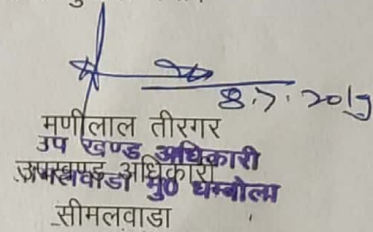 8.7.2019
मणीलाल तीरगर
उप खण्ड अधिकारी
उपखण्ड अधिकारी
मु० धम्बोला
सीमलवाडा